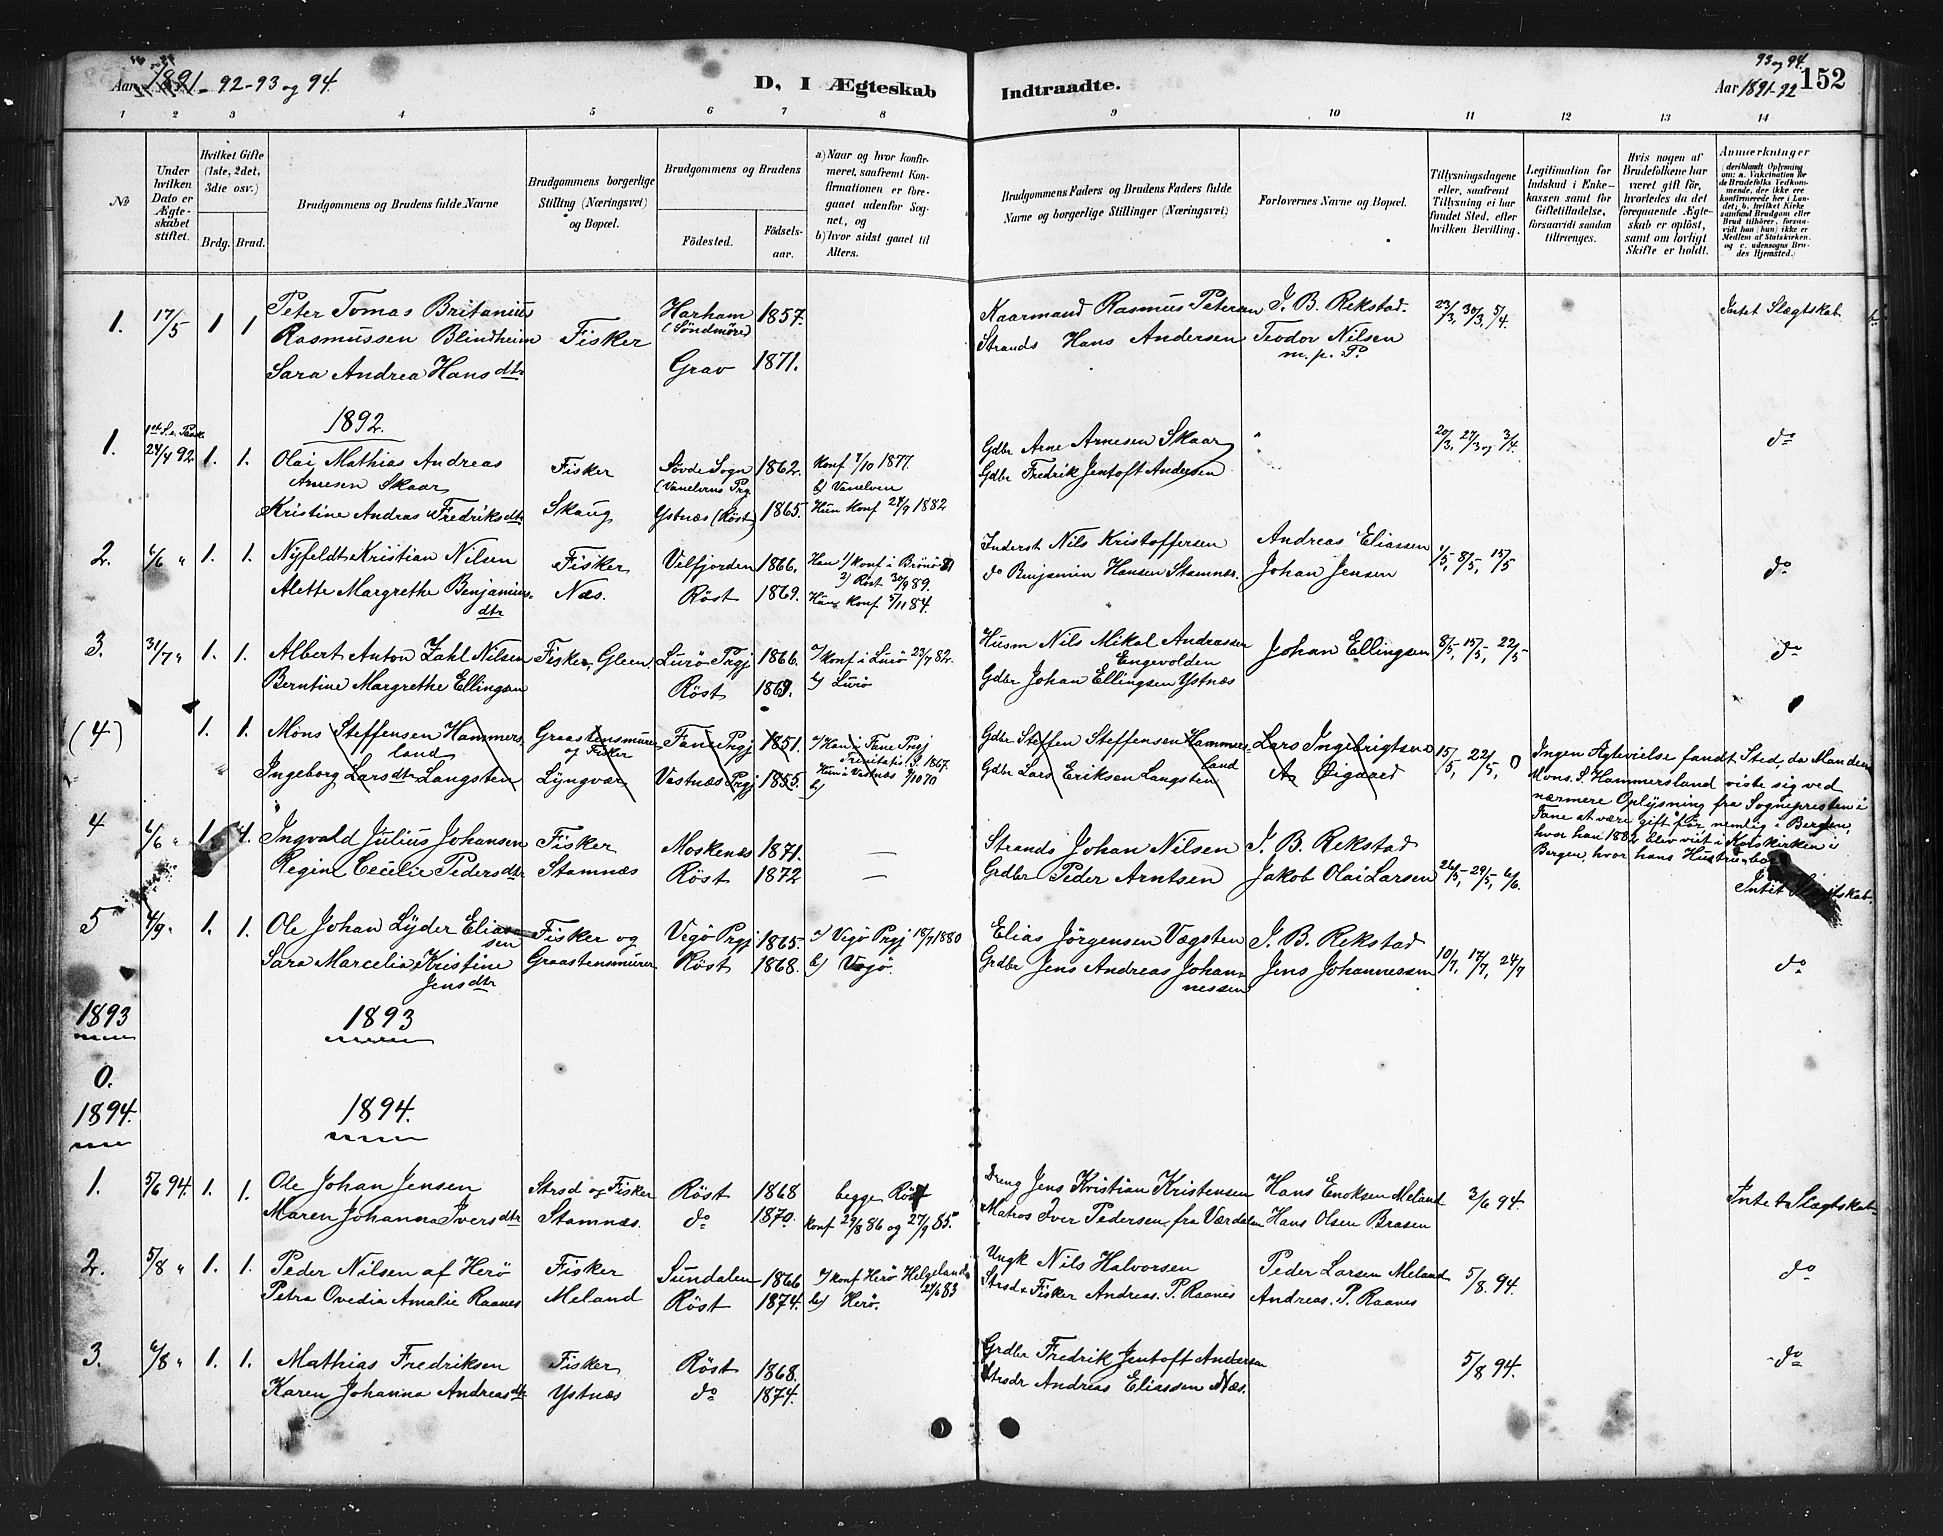 Aar 1891 - 92-93 og 94.
D, I Ægteskab
Indtraadte.
93 og 94.
Aar 1891-92
152
1 2 3 4 5 6 7 8 9 10 11 12 13 14
No
Under hvilken Dato er Ægteskabet stiftet.
Hvilket Gifte (1ste, 2det, 3die osv.)
Brdg. Brud.
Brudgommens og Brudens fulde Navne
Brudgommens borgerlige Stilling (Næringsvei) og Bopæl.
Brudgommens og Brudens
Födested.
Födselsaar.
a) Naar og hvor konfirmeret, saafremt Konfirmationen er foregaaet udenfor Sognet, og
b) hvor sidst gaaet til Alters.
Brudgommens Faders og Brudens Faders fulde Navne og borgerlige Stillinger (Næringsvei)
Forlovernes Navne og Bopæl.
Tillysningsdagene eller, saafremt Tillysning ei har fundet Sted, efter hvilken Bevilling.
Legitimation for Indskud i Enkekassen samt for Giftetilladelse, forsaavidt saadan tiltrænges.
Hvis nogen af Brudefolkene har været gift för, hvorledes da det foregaaende Ægteskab er oplöst, samt om lovligt Skifte er holdt.
Anmærkninger (deriblandt Oplysning om: a. Vakcination for de Brudefolks Vedkommende, der ikke ere konfirmerede her i Landet; b. hvilket Kirkesamfund Brudgom eller Brud tilhörer, forsaavidt han (hun) ikke er Medlem af Statskirken, og c. udensogns Brudes Hjemsted.)
1. 17/5 1 1 Peter Tomas Britanius Harham 1857. Kaarmand Rasmus Petersen J. B. Rekstad. 23/3, 30/3, 5/4. Intet Slægtskab.
Rasmussen Blindheim Fisker (Söndmöre) Strands Hans Andersen Teodor Nilsen
m. p. P.
Sara Andrea Hansdtr Grav 1871.
1892.
1. 24/4 92 1. 1. Olai Mathias Andreas Fisker Søvde Sogn 1862. Konf 7/10 1877. Gdbr Arne Arnesen Skaar " 20/3, 27/3 og 3/4. do
Arnesen Skaar (Vanelvens Prg b) Vanelven Gdbr Fredrik Jentoft Andersen
Kristine Andrea Fredriksdtr Skaug Ystnæs (Röst) 1865. Hun Konf 24/9 1882
2. 6/6 " 1. 1. Nyfeldt Kristian Nilsen Fisker Velfjorden 1866. Han 1) konf i Brönö 81 Inderst Nils Kristoffersen Andreas Eliassen 1/5, 8/5, 15/5 do
2) Röst 30/9 89. do Benjamin Hansen Stamnæs. Johan Jensen
Alette Margrethe Benjamins- Næs. Röst 1869. Hun konf 5/11 84.
dtr
3. 31/7 " 1. 1. Albert Anton Zahl Nilsen Fisker, Gleen Lurö Prgj 1866. a) konf i Lurö 23/7 82. Husm Nils Mikal Andrassen Johan Ellingsen 8/5, 15/5, 22/5 do
Engevolden
Berntine Margrethe Ellingsen Röst 1869. b) Lurö Gdbr Johan Ellingsen Ystnæs
(4) 1. 1. Mons Steffensen Hammers- Graastensmurer Fane Prgj 1851. a) Han i Fane Prgj Gdbr Steffen Steffensen Hammers- Lars Ingebrigtsen 15/5, 22/5, 0 Ingen Ægtevielse fandt Sted, da Manden
land og Fisker Trinitatis S. 1867. land
Ingeborg Larsdtr Langsten Lyngvær Vestnæs Prgj 1855. Hun i Vestnæs 9/10 70 Gdbr Lars Eriksen Langsten A. Øigaard Mons. S. Hammersland viste sig ved
b)
nærmere Oplysning fra Sognepresten i
Fane at være gift för, nemlig i Bergen,
hvor han 1882 blev viet i Korskirken i
Bergen, hvor hans Hustru bor.
4 6/6 " 1 1. Ingvald Julius Johansen Fisker Moskenæs 1871. — Strands Johan Nilsen J. B. Rekstad
Regine Cecilie Pedersdtr Stamnæs Röst 1872 — Grdbr Peder Arntsen Jakob Olai Larsen 26/5, 29/5, 6/6. Intet Slægtskab.
5 4/9. 1. 1. Ole Johan Lyder Elias- Fisker og Vegö Prgj 1865. a) Vegö Prgj 18/7 1880 Elias Jörgensen Vægsten J. B. Rekstad
sen
Sara Marcelia Kristine Graastensmurer Röst 1868. b) Vegö. Grdbr Jens Andreas Johan- Jens Johannessen 10/7, 17/7, 24/7 do
Jensdtr nessen
1893 1893
0.
1894. 1894.
1. 5/6 94. 1. 1. Ole Johan Jensen Strsd og Fisker Röst 1868 begge Röst Dreng Jens Kristian Kristensen Hans Enoksen Meland 3/6 94. Intet Slægtskab
Maren Johanna Iversdtr Stamnæs. do 1870. konf 29/8 86 og 27/9 85. Matros Iver Pedersen fra Værdalen Hans Olsen Brasen
2. 5/8 " 1. 1. Peder Nilsen af Herö Fisker Sundalen 1866 a) konf Herö Helgeland 24/6 83 Ungk Nils Halvorsen Peder Larsen Meland 5/8. 94. do
Petra Ovedia Amalie Raanes Meland Röst 1874. b) Herö. Strsd & Fisker Andreas. P. Raanes Andreas. P. Raanes
3. 6/8 " 1. 1. Mathias Fredriksen Fisker Röst 1868. Grdbr Fredrik Jentoft Andersen 5/8 94. do
Karen Johanna Andreasdtr Ystnæs do 1874. Strsdr Andreas Eliassen Næs.